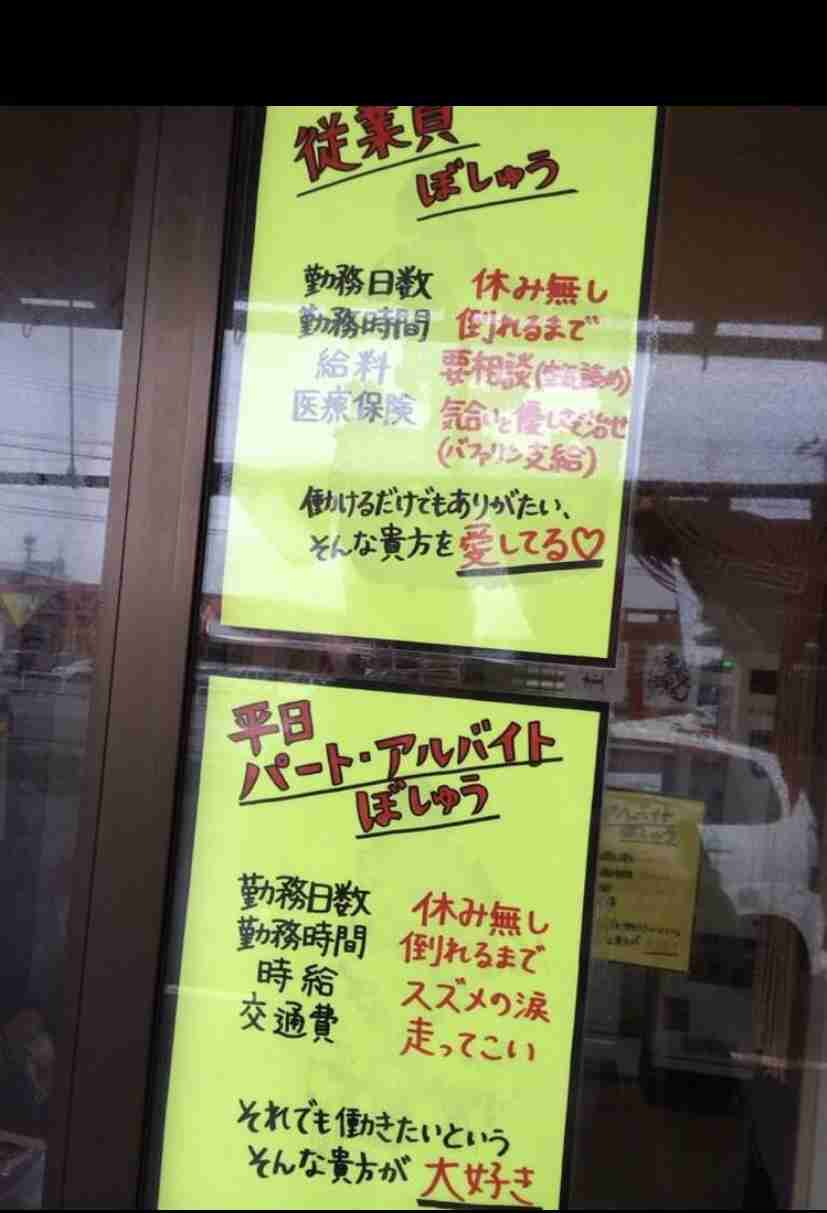 従業員
ぼしゅう
勤務日数 休み無し
勤務時間 倒れるまで
給料 要相談(缶詰め)
医療保険 気合いと優しさで治せ
(バファリン支給)
働けるだけでもありがたい、
そんな貴方を愛してる♡
平日
パート・アルバイト
ぼしゅう
勤務日数 休み無し
勤務時間 倒れるまで
時給 スズメの涙
交通費 走ってこい
それでも働きたいという
そんな貴方が 大好き
アルバイト
ぼしゅう